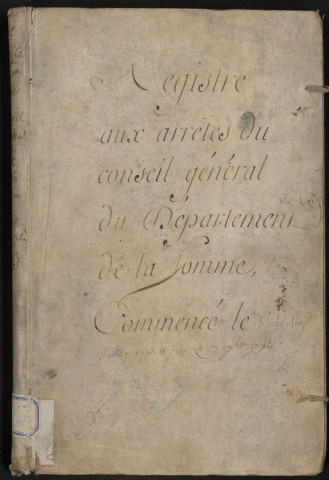 Registre
aux arrêtés du
conseil général
du Département
de la Somme,
Commencé le